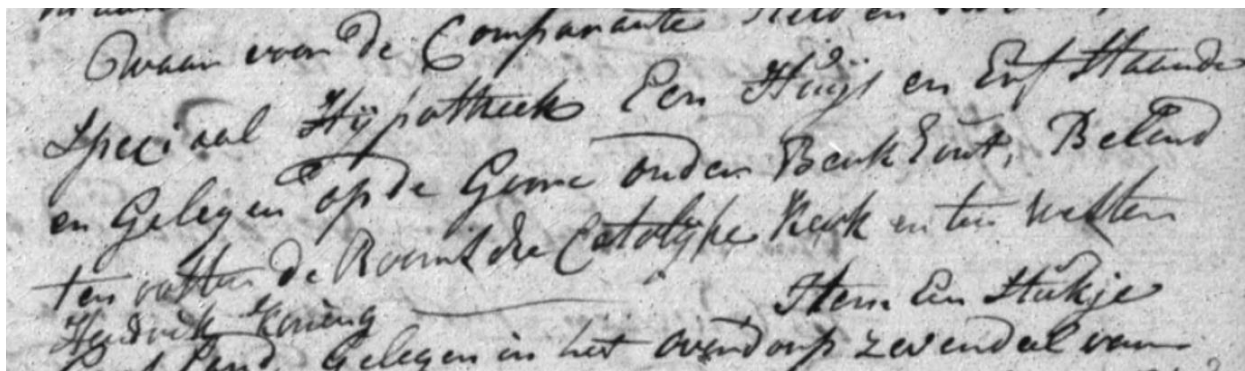 Waar voor de Comparante
Speciaal Hijpotheek Een Huijs en Erf Staande
en Gelegen op de Goorn onder Berkhout, Belend
ten oosten de Roomsche Catolijke Kerk en ten Westen
Hendrik Koning Item Een Stukje
Land, gelegen in het oven dorp zevendeel van